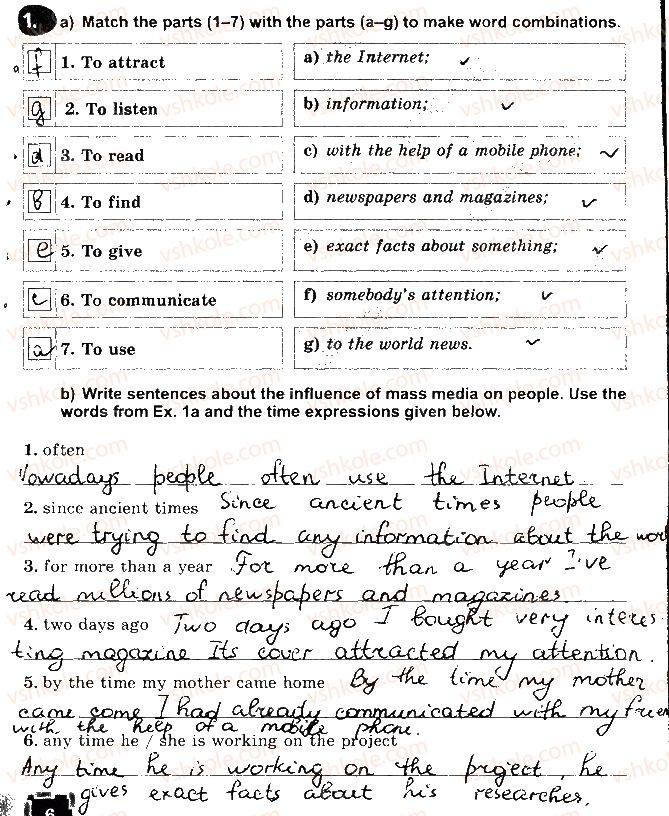 1. a) Match the parts (1–7) with the parts (a–g) to make word combinations.
f 1. To attract a) the Internet;
g 2. To listen b) information;
d 3. To read c) with the help of a mobile phone;
b 4. To find d) newspapers and magazines;
e 5. To give e) exact facts about something;
c 6. To communicate f) somebody's attention;
a 7. To use g) to the world news.
b) Write sentences about the influence of mass media on people. Use the
words from Ex. 1a and the time expressions given below.
1. often
Nowadays people often use the Internet
2. since ancient times Since ancient times people
were trying to find any information about the wor
3. for more than a year For more than a year I've
read millions of newspapers and magazines.
4. two days ago Two days ago I bought very interes
ting magazine Its cover attracted my attention.
5. by the time my mother came home By the time my mother
came come I had already communicated with my frien
with the help of a mobile phone.
6. any time he / she is working on the project
Any time he is working on the project, he
gives exact facts about his researches.
6
vshkole.com